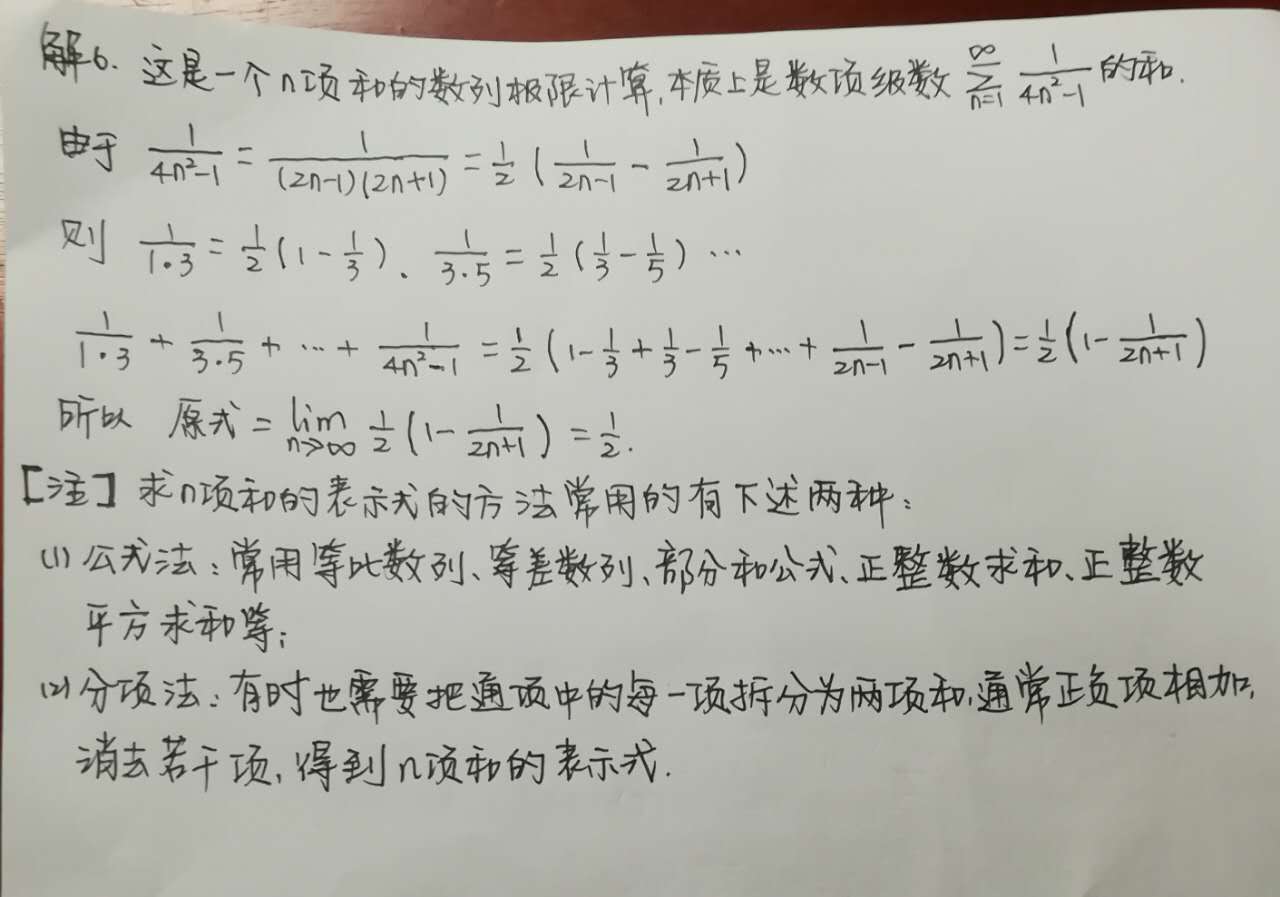 解6. 这是一个n项和的数列极限计算,本质上是数项级数 $\sum_{n=1}^{\infty} \frac{1}{4n^2-1}$ 的和.
由于 $\frac{1}{4n^2-1} = \frac{1}{(2n-1)(2n+1)} = \frac{1}{2} \left( \frac{1}{2n-1} - \frac{1}{2n+1} \right)$
则 $\frac{1}{1 \cdot 3} = \frac{1}{2} (1 - \frac{1}{3})$、$\frac{1}{3 \cdot 5} = \frac{1}{2} (\frac{1}{3} - \frac{1}{5}) \cdots$
$\frac{1}{1 \cdot 3} + \frac{1}{3 \cdot 5} + \cdots + \frac{1}{4n^2-1} = \frac{1}{2} \left( 1 - \frac{1}{3} + \frac{1}{3} - \frac{1}{5} + \cdots + \frac{1}{2n-1} - \frac{1}{2n+1} \right) = \frac{1}{2} \left( 1 - \frac{1}{2n+1} \right)$
所以 原式 $= \lim_{n \to \infty} \frac{1}{2} \left( 1 - \frac{1}{2n+1} \right) = \frac{1}{2}.$
[注] 求n项和的表示式的方法常用的有下述两种:
(1) 公式法:常用等比数列、等差数列、部分和公式、正整数求和、正整数
平方求和等;
(2) 分项法:有时也需要把通项中的每一项拆分为两项和,通常正负项相加,
消去若干项,得到n项和的表示式.